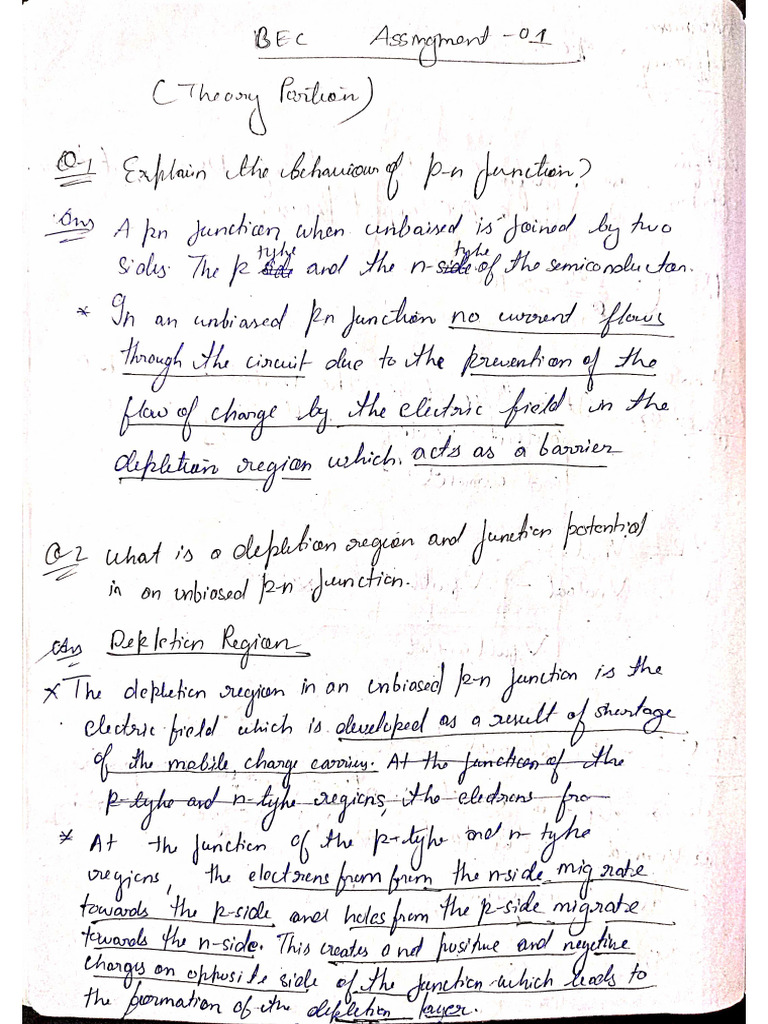 BEC Assingment - 01
(Theory Portion)
Q-1 Explain the behaviour of p-n junction?
Ans A pn junction when unbaised is joined by two
type type
sides. The p side and the n-side of the semiconductor.
* In an unbiased pn junction no current flows
through the circuit due to the prevention of the
flow of charge by the electric field in the
depletion region which acts as a barrier
Q2 What is a depletion region and junction potential
in an unbiased p-n junction.
Ans Depletion Region
* The depletion region in an unbiased p-n junction is the
electric field which is developed as a result of shortage
of the mobile charge carriers. At the junction of the
p-type and n-type regions, the electrons fro
* At the junction of the p-type and n-type
regions, the electrons from from the n-side migrate
towards the p-side and holes from the p-side migrate
towards the n-side. This creates and positive and negetive
charges on opposite side of the junction which leads to
the formation of the depletion layer.